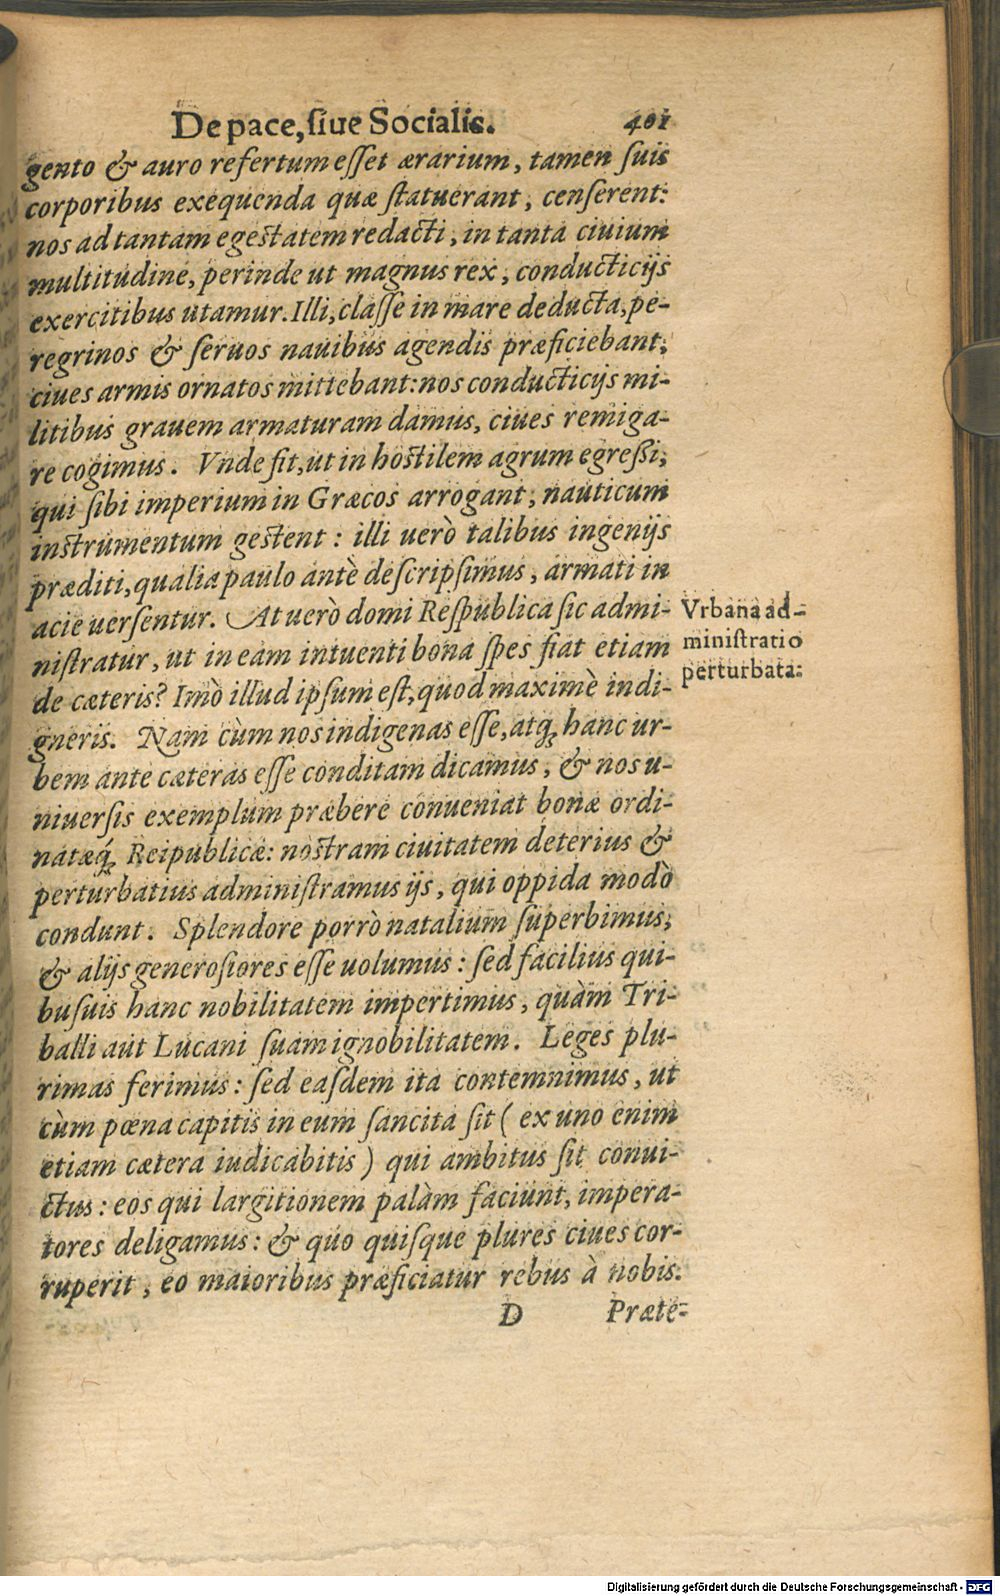 De pace, ſiue Socialis. 401
gento & auro refertum eſſet ærarium, tamen ſuis
corporibus exequenda quæ ſtatuerant, cenſerent:
nos ad tantam egeſtatem redacti, in tanta ciuium
multitudine, perinde ut magnus rex, conducticijs
exercitibus utamur. Illi, claſſe in mare deducta, pe-
regrinos & ſeruos nauibus agendis præficiebant,
ciues armis ornatos mittebant: nos conducticijs mi-
litibus grauem armaturam damus, ciues remiga-
re cogimus. Vnde fit, ut in hoſtilem agrum egreſsi,
qui ſibi imperium in Græcos arrogant, nauticum
inſtrumentum geſtent: illi uerò talibus ingenijs
præditi, qualia paulo antè deſcripſimus, armati in
acie uerſentur. At uerò domi Reſpublica ſic admi-
niſtratur, ut in eam intuenti bona ſpes fiat etiam
de cæteris? Imò illud ipſum eſt, quod maximè indi-
gneris. Nam cùm nos indigenas eſſe, atq; hanc ur-
bem ante cæteras eſſe conditam dicamus, & nos u-
niuerſis exemplum præbere conueniat bonæ ordi-
natæq́; Reipublicæ: noſtram ciuitatem deterius &
perturbatius adminiſtramus ijs, qui oppida modò
condunt. Splendore porrò natalium ſuperbimus,
& alijs generoſiores eſſe uolumus: ſed facilius qui-
buſuis hanc nobilitatem impertimus, quàm Tri-
balli aut Lucani ſuam ignobilitatem. Leges plu-
rimas ferimus: ſed eaſdem ita contemnimus, ut
cùm pœna capitis in eum ſancita ſit (ex uno enim
etiam cætera iudicabitis) qui ambitus ſit conui-
ctus: eos qui largitionem palàm faciunt, impera-
tores deligamus: & quo quiſque plures ciues cor-
ruperit, eo maioribus præficiatur rebus à nobis.
D Præte-
Vrbana ad-
miniſtratio
perturbata.
Digitalisierung gefördert durch die Deutsche Forschungsgemeinschaft - DFG